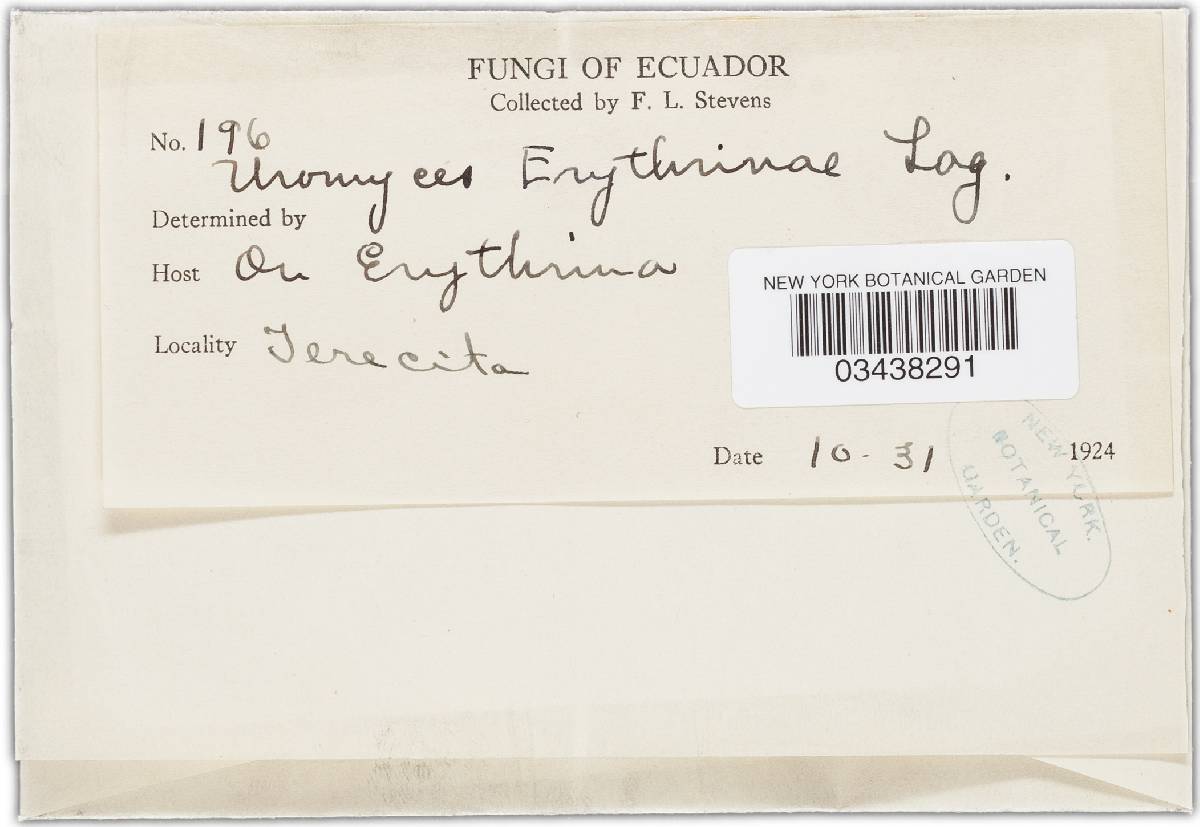 FUNGI OF ECUADOR
Collected by F. L. Stevens
No. 196
Uromyces Erythrinae Lag.
Determined by
Host On Erythrina
Locality Terecita
NEW YORK BOTANICAL GARDEN
03438291
Date 10-31 1924
NEW YORK.
BOTANICAL
GARDEN.